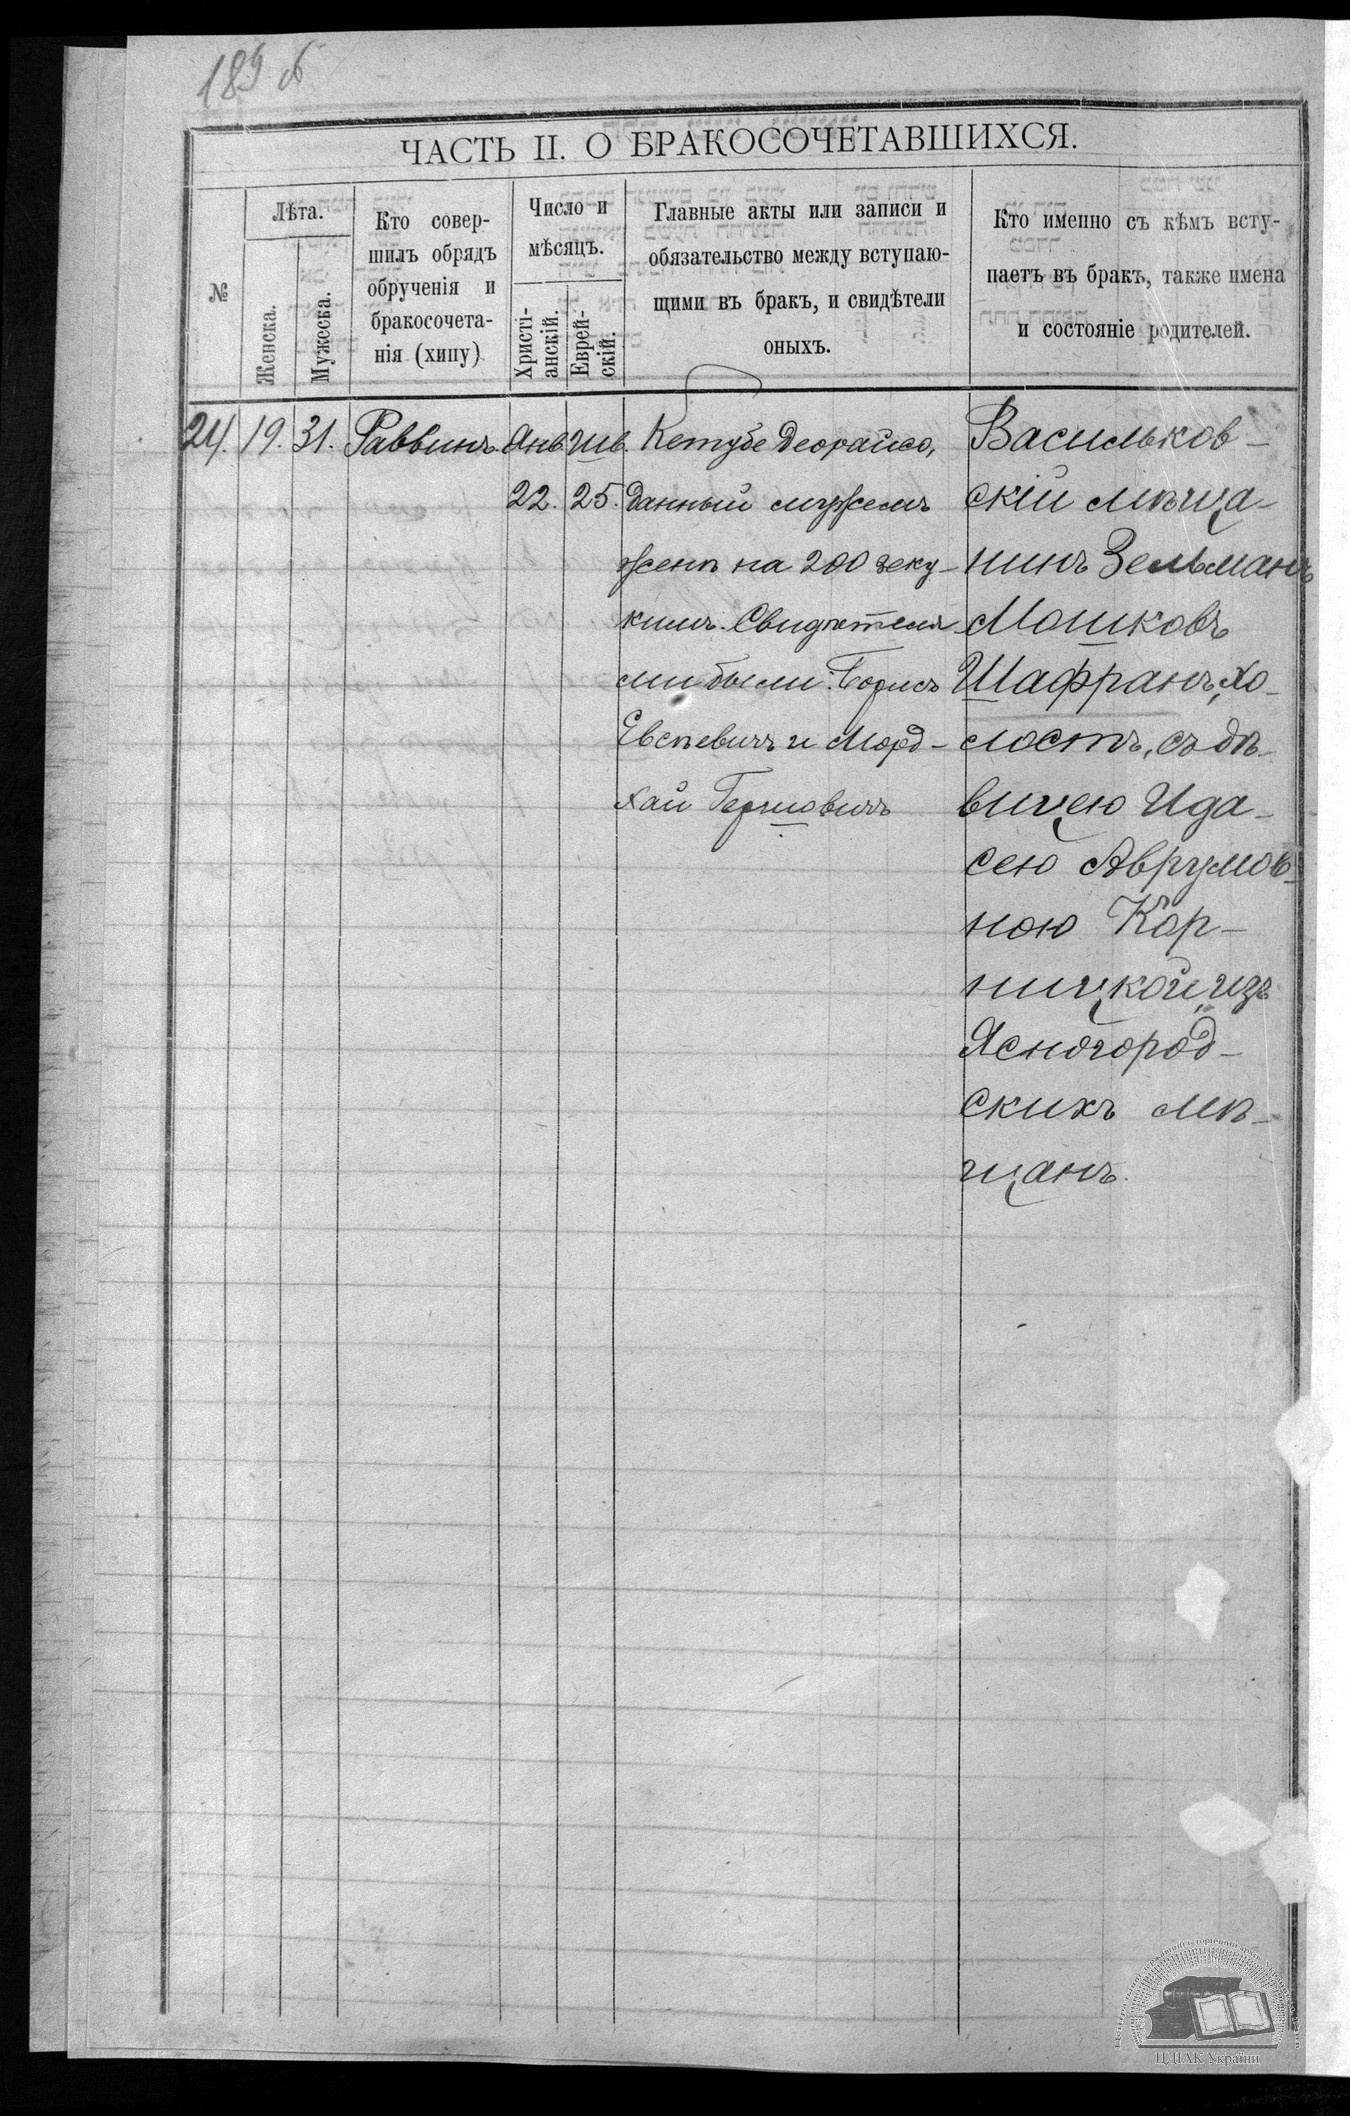 189 об
ЧАСТЬ II. О БРАКОСОЧЕТАВШИХСЯ.
№
Лѣта.
Женска.
Мужеска.
Кто совер-
шилъ обрядъ
обрученія и
бракосочета-
нія (хипу)
Число и
мѣсяцъ.
Христі-
анскій.
Еврей-
скій.
Главные акты или записи и
обязательство между вступаю-
щими въ бракъ, и свидѣтели
оныхъ.
Кто именно съ кѣмъ всту-
паетъ въ бракъ, также имена
и состояніе родителей.
24. 19. 31. Раввинъ. Янв. Шв.
22. 25.
Кетубе Деорайсо,
данный мужемъ
женѣ на 200 зеку-
кимъ. Свидѣтеля
ми были: Борисъ
Евсѣевичъ и Морд-
хай Гершовичъ
Васильков-
скій мѣща-
нинъ Зельманъ
Мошковъ
Шафранъ, хо-
лостъ, съ дѣ-
вицею Ида-
сею Аврумов-
ною Кор-
ницкой, изъ
Ясногород-
скихъ мѣ-
щанъ.
ЦДІАК України